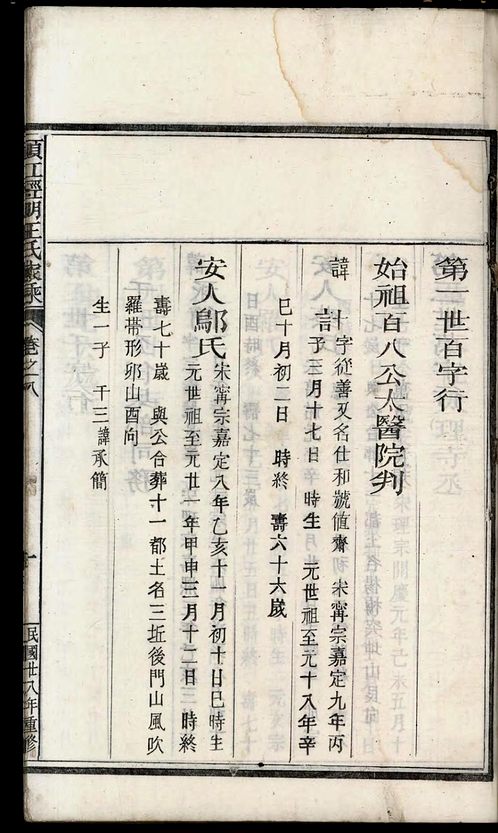 第一世百字行
始祖百八公太醫院判
諱計 字從善又名仕和號值齋 宋甯宗嘉定九年丙
子三月十七日 時生 元世祖至元十八年辛
巳十月初二日 時終 壽六十六歲
安人鄔氏 宋甯宗嘉定八年乙亥十一月初十日巳時生
元世祖至元廿一年甲申三月十二日 時終
壽七十歲 與公合葬十一都土名三坵後門山風吹
羅帶形卯山酉向
生一子 千三諱承簡
江經明王氏家乘
卷之八
民國廿八年重修